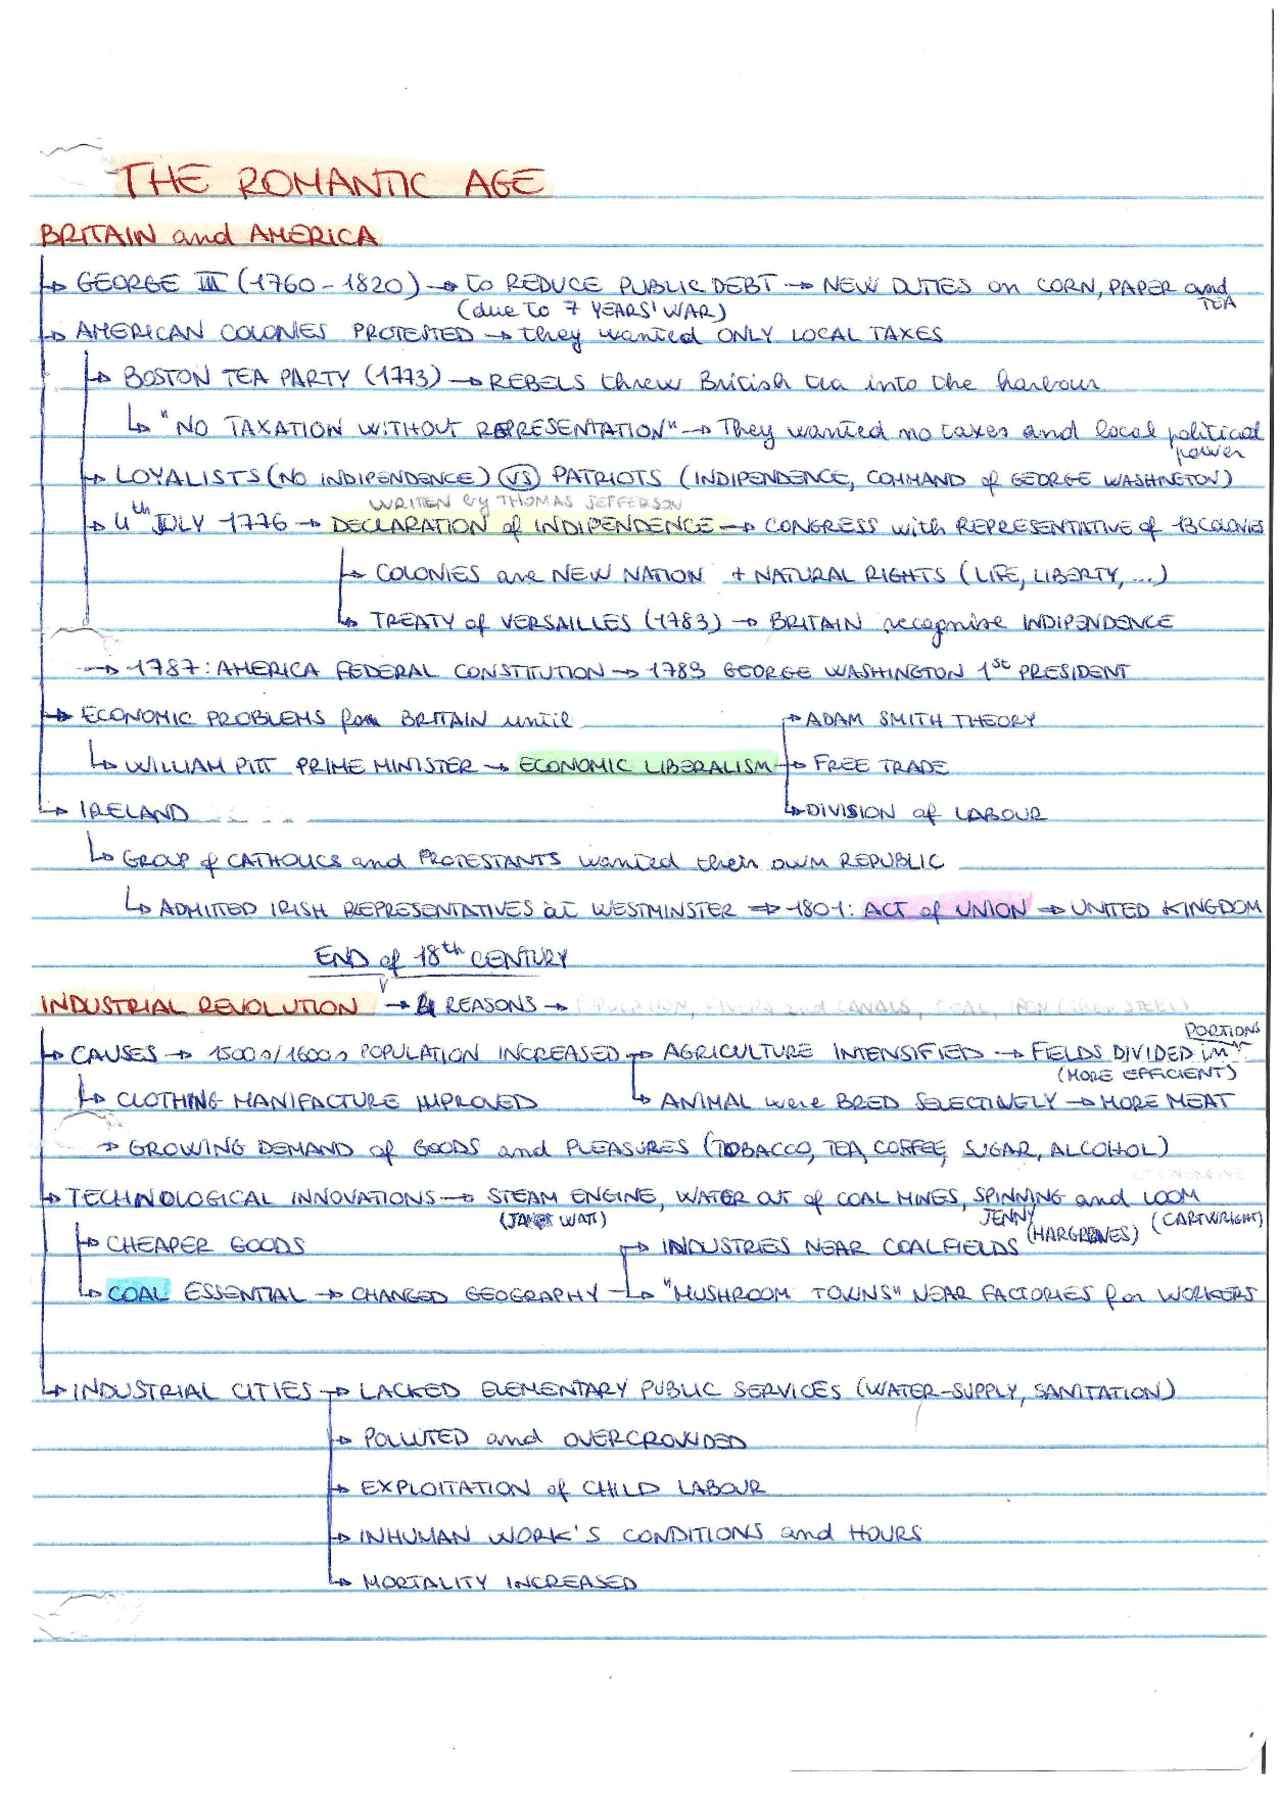 THE ROMANTIC AGE
BRITAIN and AMERICA
→ GEORGE III (1760-1820) → to REDUCE PUBLIC DEBT → NEW DUTIES on CORN, PAPER and TEA
(due to 7 YEARS' WAR)
→ AMERICAN COLONIES PROTESTED → they wanted ONLY LOCAL TAXES
→ BOSTON TEA PARTY (1773) → REBELS threw British tea into the harbour
↳ "NO TAXATION WITHOUT REPRESENTATION" → They wanted no taxes and local political power
→ LOYALISTS (NO INDIPENDENCE) VS PATRIOTS (INDIPENDENCE, COMMAND of GEORGE WASHINGTON)
WRITTEN by THOMAS JEFFERSON
→ 4th JULY 1776 → DECLARATION of INDIPENDENCE → CONGRESS with REPRESENTATIVE of 13 COLONIES
→ COLONIES are NEW NATION + NATURAL RIGHTS (LIFE, LIBERTY, ...)
↳ TREATY of VERSAILLES (1783) → BRITAIN recognise INDIPENDENCE
→ 1787: AMERICA FEDERAL CONSTITUTION → 1789 GEORGE WASHINGTON 1st PRESIDENT
→ ECONOMIC PROBLEMS for BRITAIN until
→ ADAM SMITH THEORY
↳ WILLIAM PITT PRIME MINISTER → ECONOMIC LIBERALISM → FREE TRADE
↳ IRELAND
↳ DIVISION of LABOUR
↳ GROUP of CATHOLICS and PROTESTANTS wanted their own REPUBLIC
↳ ADMITTED IRISH REPRESENTATIVES at WESTMINSTER ⇒ 1801: ACT of UNION → UNITED KINGDOM
END of 18th CENTURY
INDUSTRIAL REVOLUTION → 4 REASONS → POPULATION, RIVERS and CANALS, COAL, IRON
PORTIONS
→ CAUSES → 1500s/1600s POPULATION INCREASED → AGRICULTURE INTENSIFIED → FIELDS DIVIDED in
(MORE EFFICIENT)
↳ CLOTHING MANIFACTURE IMPROVED ↳ ANIMAL were BRED SELECTIVELY → MORE MEAT
→ GROWING DEMAND of GOODS and PLEASURES (TOBACCO, TEA, COFFEE, SUGAR, ALCOHOL)
→ TECHNOLOGICAL INNOVATIONS → STEAM ENGINE, WATER out of COAL MINES, SPINNING and LOOM
(JAMES WATT) JENNY (HARGREAVES) (CARTWRIGHT)
→ CHEAPER GOODS → INDUSTRIES NEAR COALFIELDS
↳ COAL ESSENTIAL → CHANGED GEOGRAPHY ↳ "MUSHROOM TOWNS" NEAR FACTORIES for WORKERS
↳ INDUSTRIAL CITIES → LACKED ELEMENTARY PUBLIC SERVICES (WATER-SUPPLY, SANITATION)
→ POLLUTED and OVERCROWDED
→ EXPLOITATION of CHILD LABOUR
→ INHUMAN WORK'S CONDITIONS and HOURS
↳ MORTALITY INCREASED